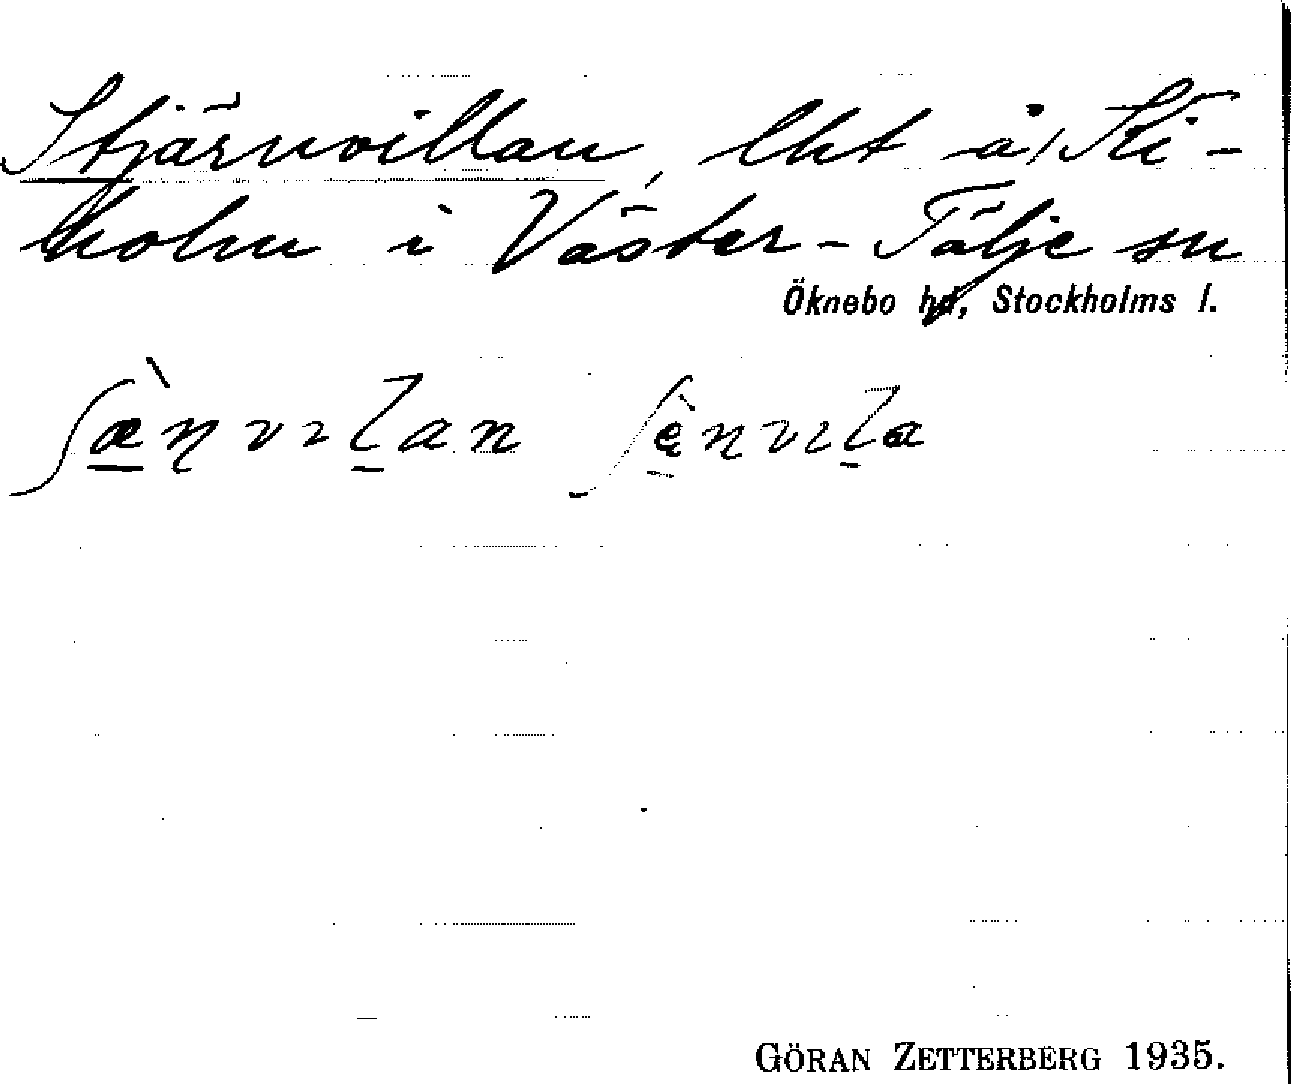 Stjärnvillan, lht å Ki-
holm i Väster-Tälje sn
Öknebo hd, Stockholms l.
ʃæ̠̀ɳvıl̠an ʃè̠nvıl̠a
GÖRAN ZETTERBERG 1935.